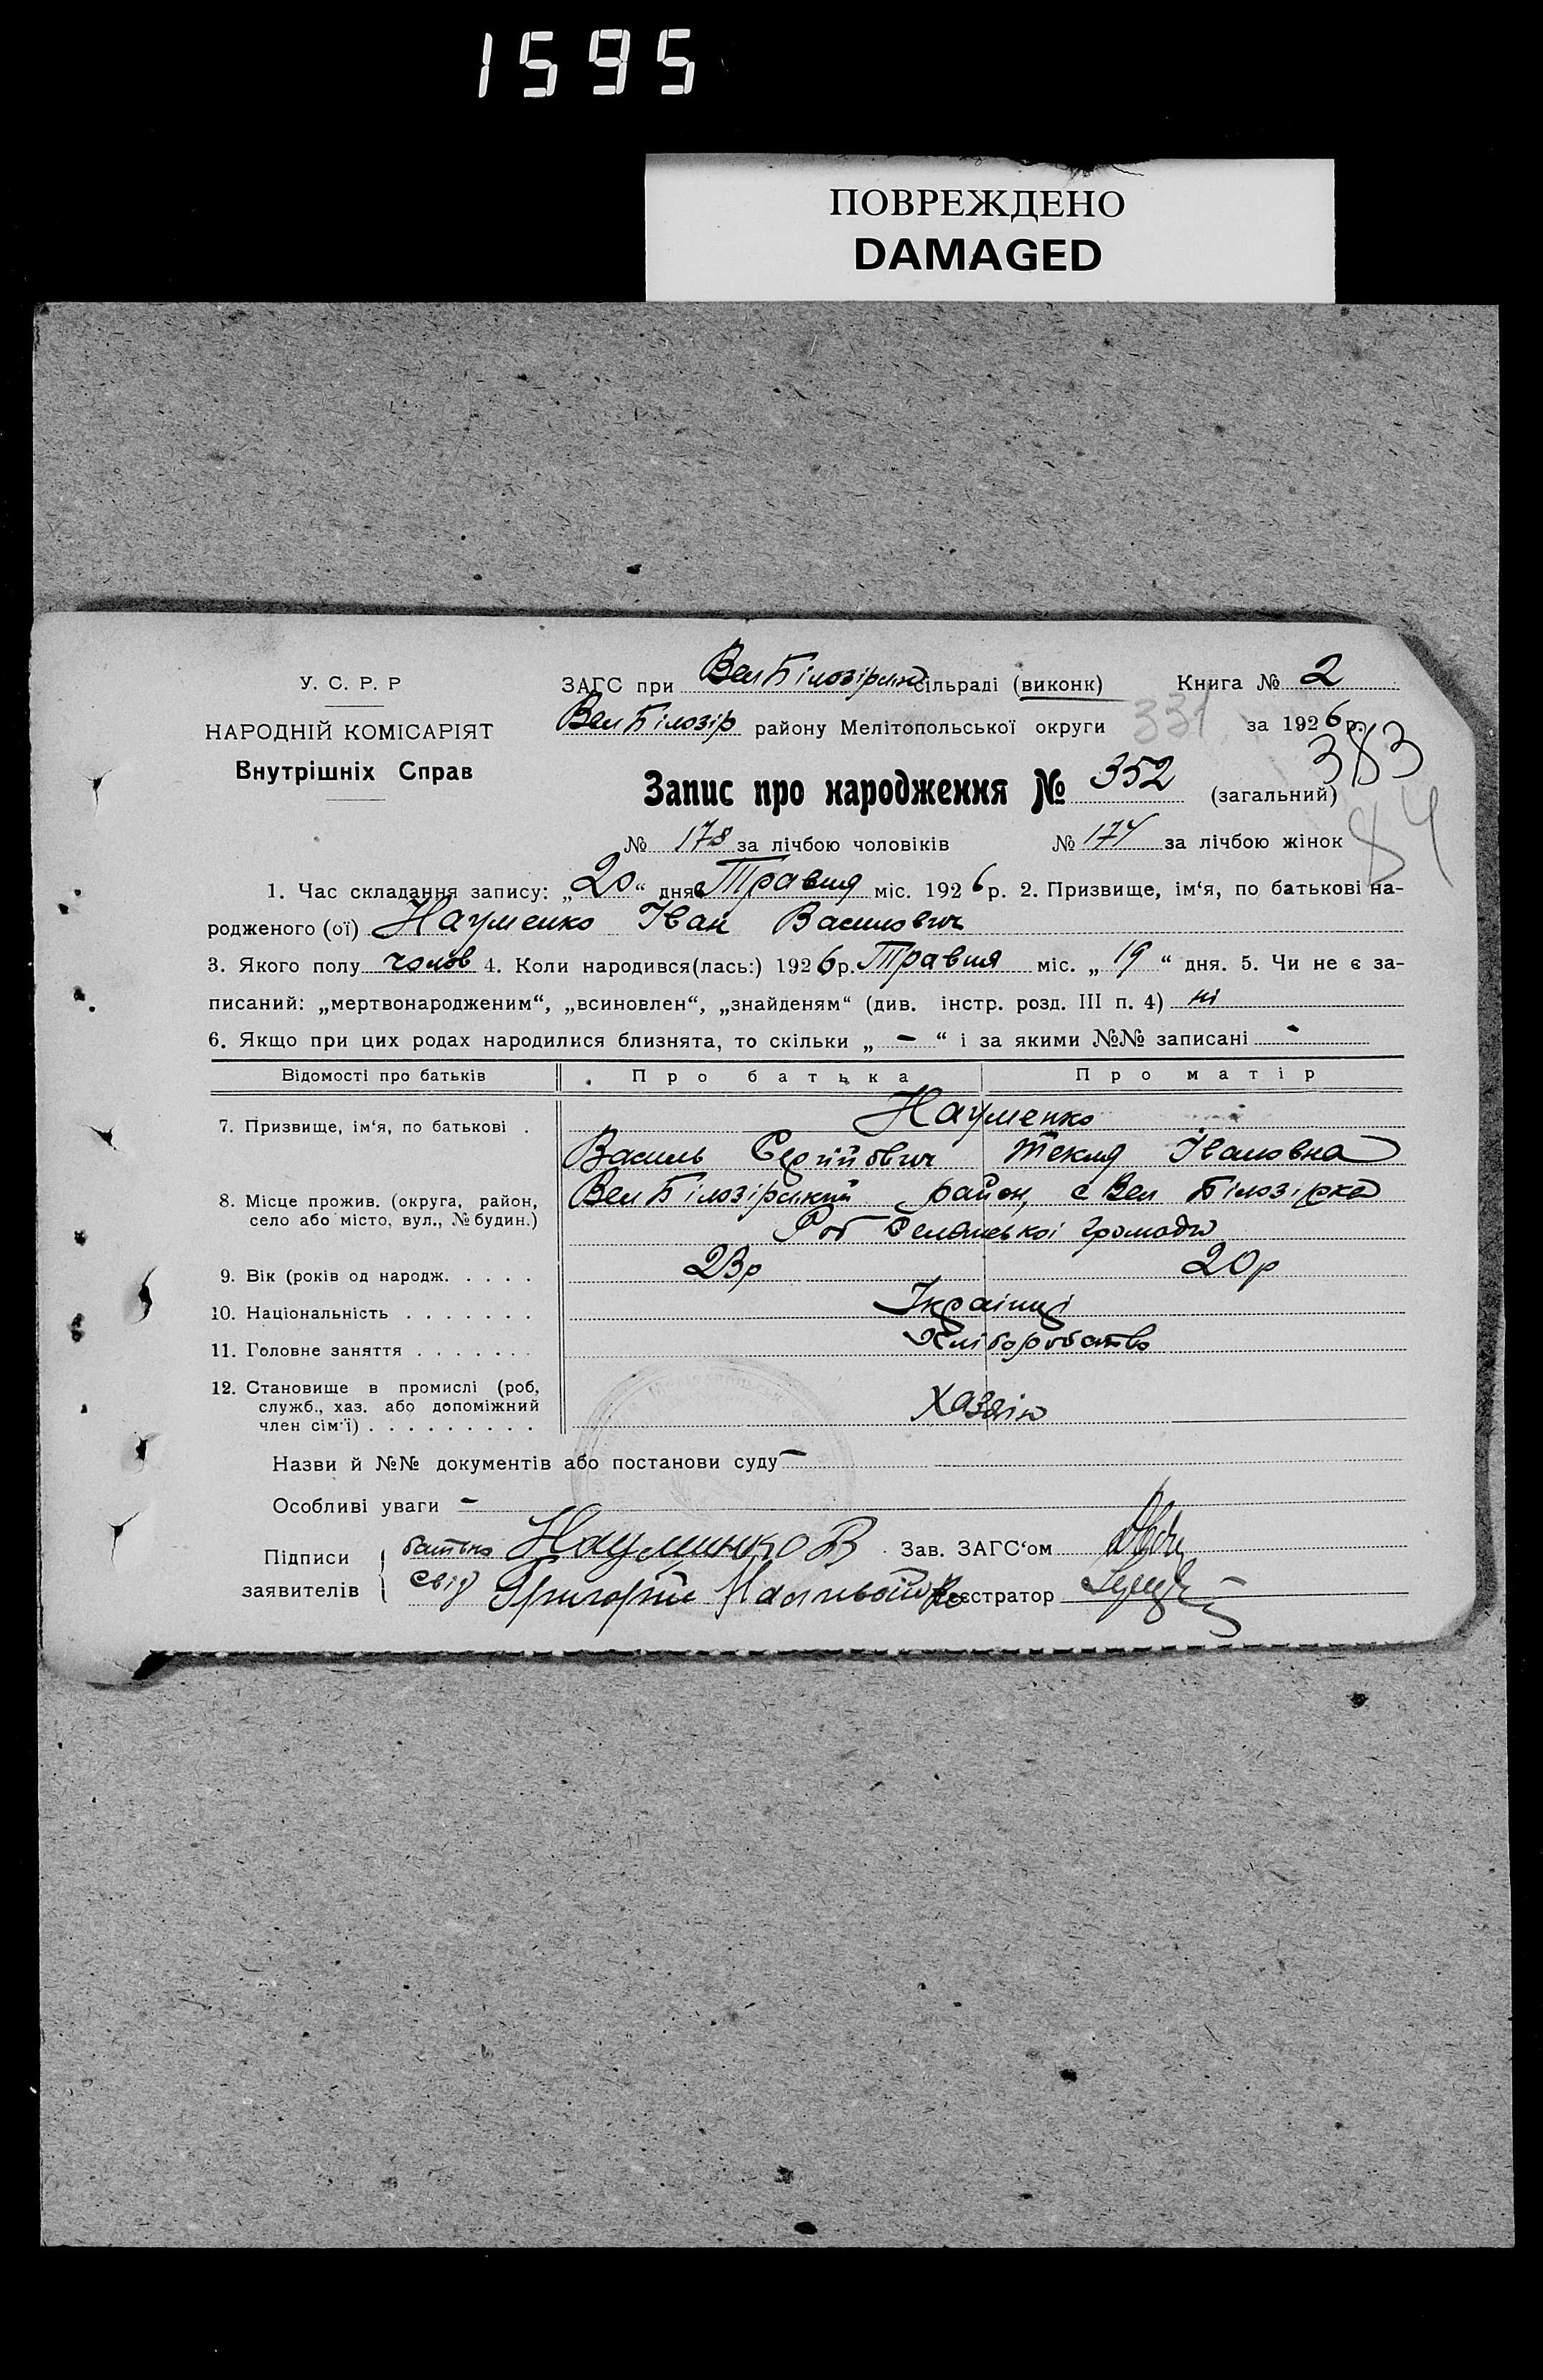 1595
ПОВРЕЖДЕНО
DAMAGED
У. С. Р. Р
НАРОДНІЙ КОМІСАРІЯТ
Внутрішніх Справ
ЗАГС при ВелБілозірськ сільраді (виконк) Книга № 2
ВелБілозір району Мелітопольської округи 331 за 1926 р.
383
Запис про народження № 352 (загальний)
84
№ 178 за лічбою чоловіків № 174 за лічбою жінок
1. Час складання запису: „20“ дня Травня міс. 1926 р. 2. Призвище, ім‘я, по батькові на-
родженого (ої) Науменко Іван Василович
3. Якого полу чолов 4. Коли народився(лась:) 1926 р. Травня міс. „19“ дня. 5. Чи не є за-
писаний: „мертвонародженим“, „всиновлен“, „знайденям“ (див. інстр. розд. III п. 4) ні
6. Якщо при цих родах народилися близнята, то скільки „-“ і за якими №№ записані -
Відомості про батьків Про батька Про матір
7. Призвище, ім‘я, по батькові . Науменко
Василь Сергійович Текля Івановна
8. Місце прожив. (округа, район, ВелБілозірський район, с Вел Білозірка
село або місто, вул., № будин.)
Рог Селянської громади
9. Вік (років од народж. . . . . 23р 20р
10. Національність . . . . . . . Українці
11. Головне заняття . . . . . . . Хліборобство
12. Становище в промислі (роб,
служб., хаз. або допоміжний
член сім‘ї) . . . . . . . . . Хазяін
Назви й №№ документів або постанови суду -
Особливі уваги -
Підписи батько Науминко В Зав. ЗАГС‘ом
заявителів свід Григорій Реєстратор